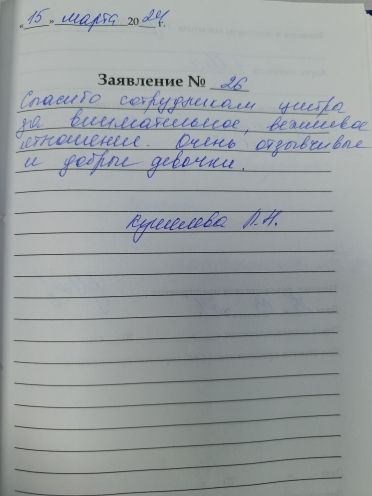 «15» марта 2024 г.
Заявление № 26
Спасибо сотрудникам центра
за внимательное, вежливое
отношение. Очень отзывчивые
и добрые девочки.
Л.Н.